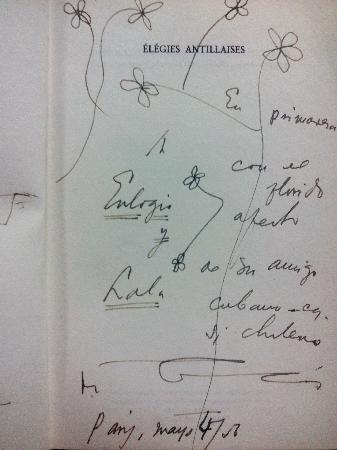 ÉLÉGIES ANTILLAISES
En primavera
A
Eulogio
y
Lala
con el
florido
afecto
de su amigo
cubano-ca-
si chileno
París, mayo 4/56